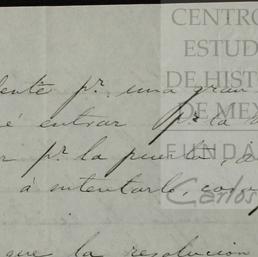 CENTRO
ESTUD
DE HIST
DE MEX
FUNDA
Carlos
ente pr. una gran
é entrar pr. la
r pr. la puerta,
á intentarlo, con
que la resolucion